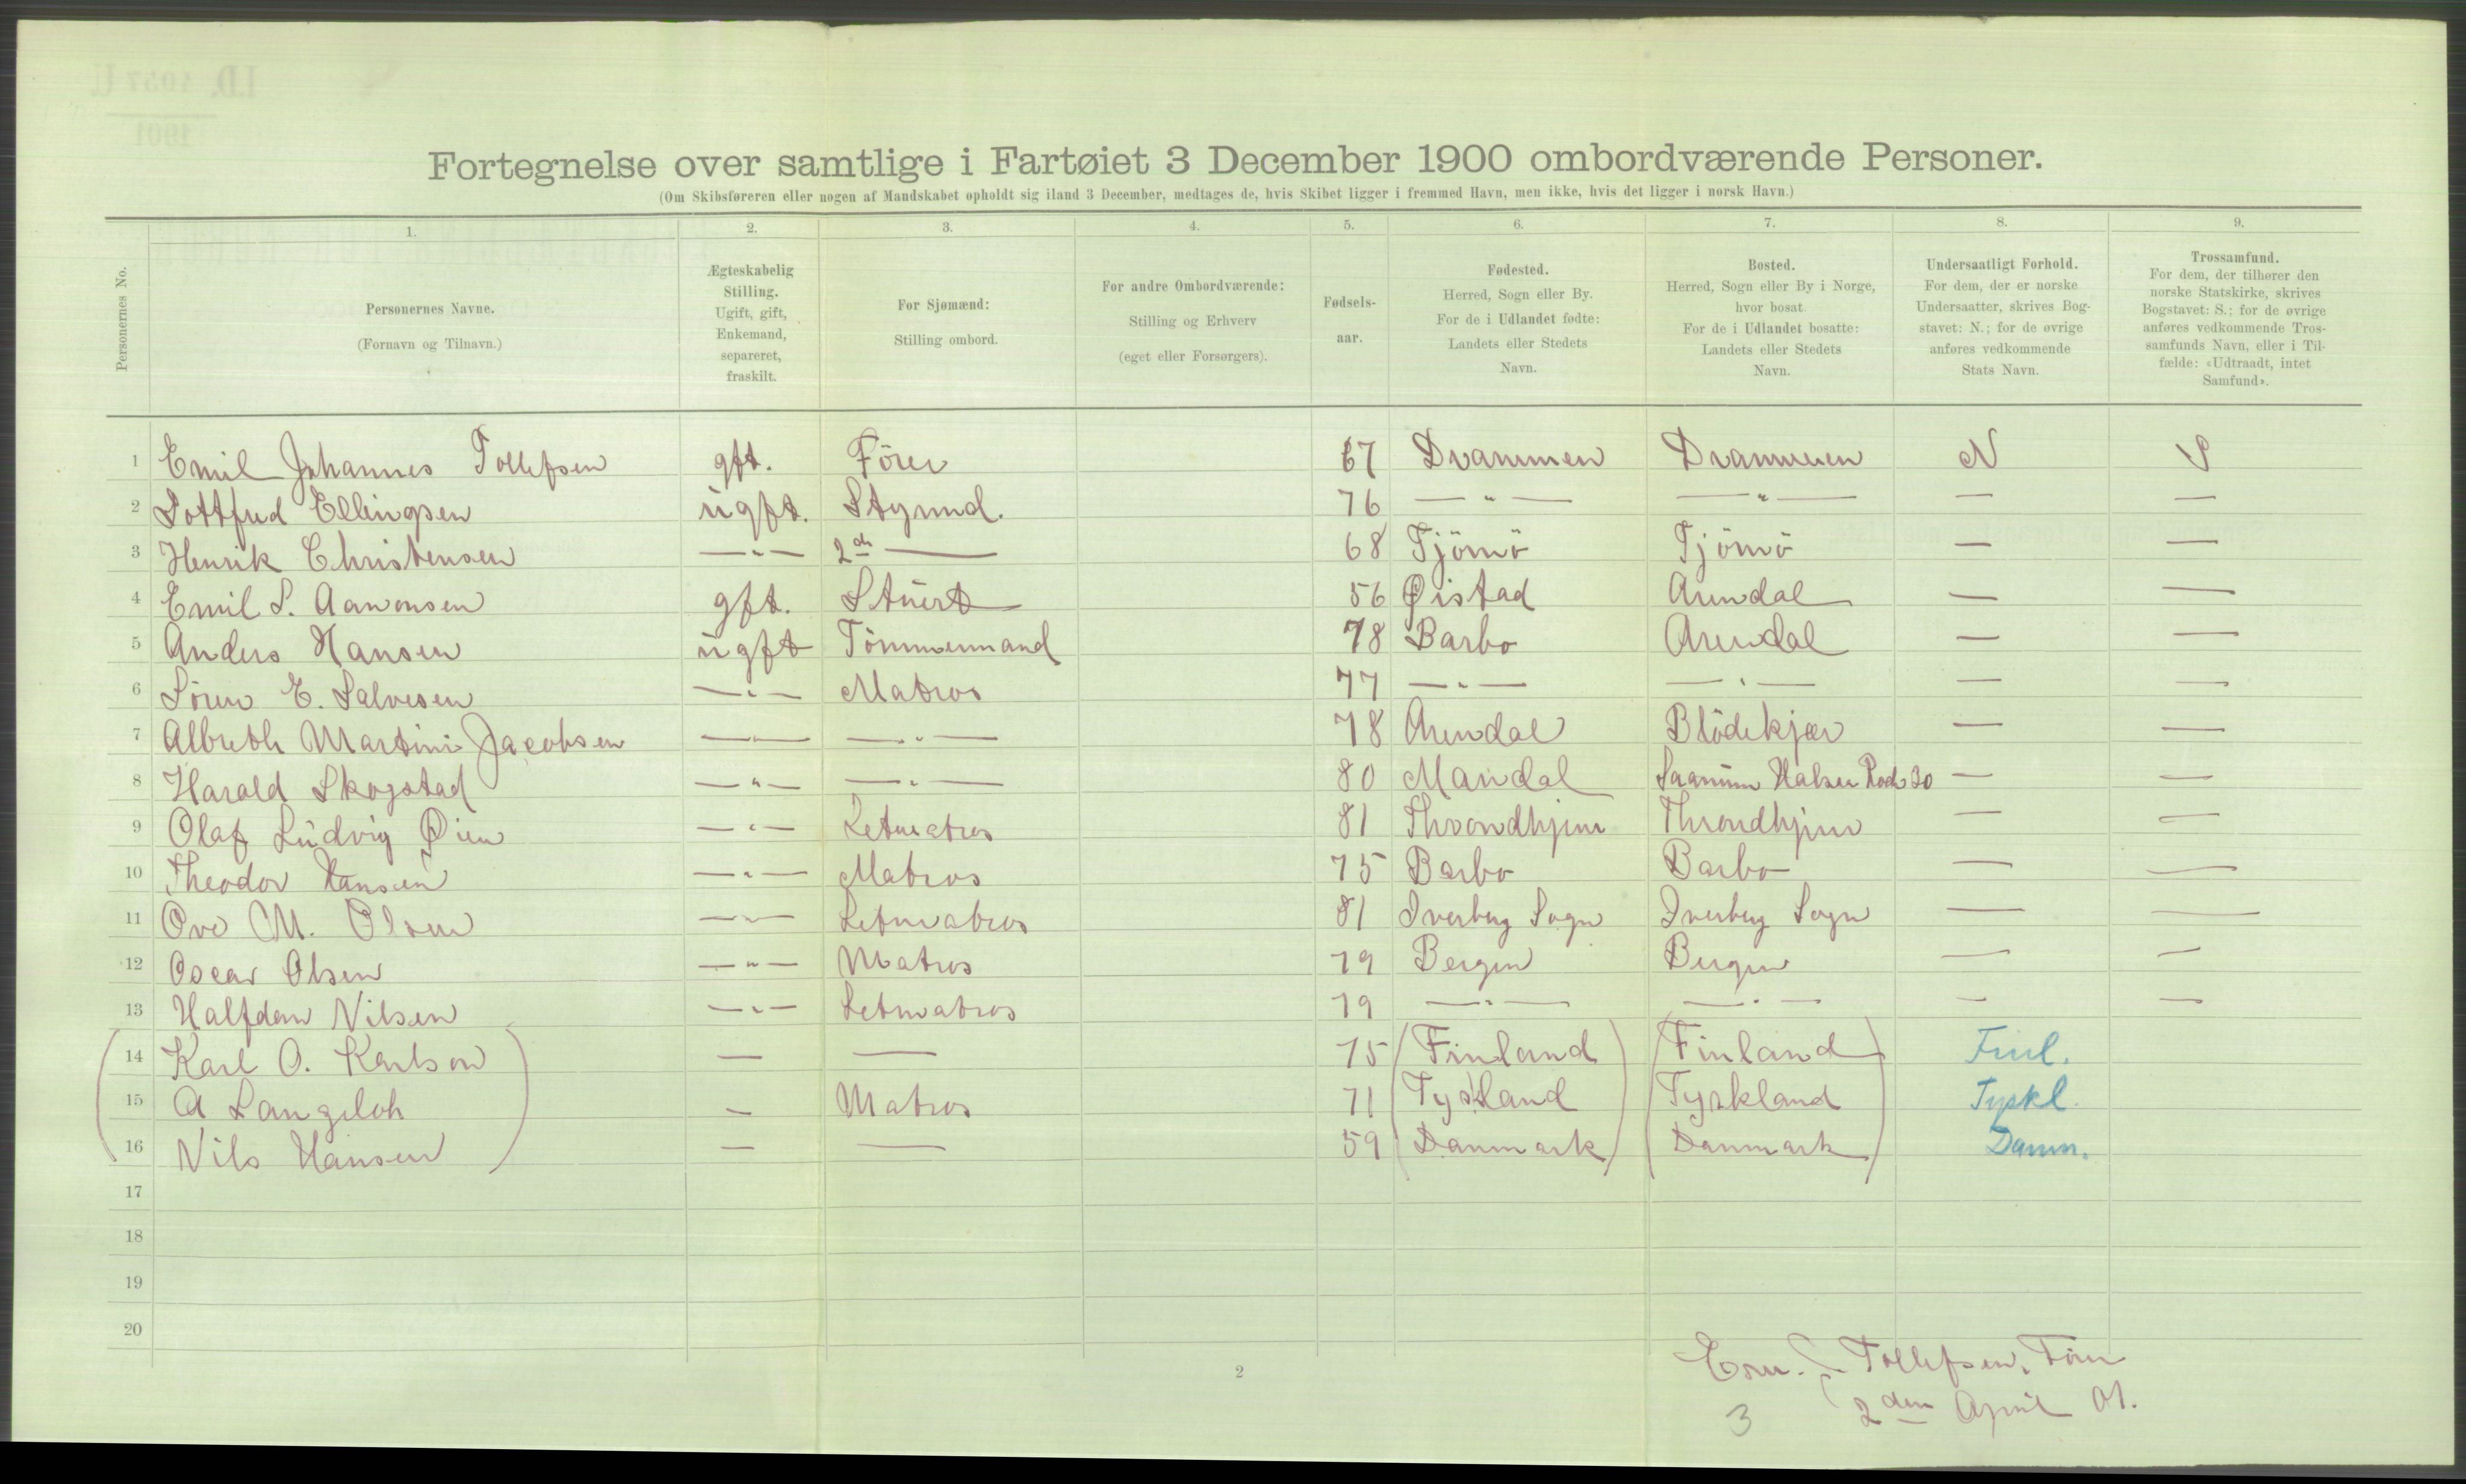 Fortegnelse over samtlige i Fartøiet 3 December 1900 ombordværende Personer.
(Om Skibsføreren eller nogen af Mandskabet opholdt sig iland 3 December, medtages de, hvis Skibet ligger i fremmed Havn, men ikke, hvis det ligger i norsk Havn.)
1. 2. 3. 4. 5. 6. 7. 8. 9.
Personernes No.
Personernes Navne.
(Fornavn og Tilnavn.)
Ægteskabelig
Stilling.
Ugift, gift,
Enkemand,
separeret,
fraskilt.
For Sjømænd:
Stilling ombord.
For andre Ombordværende:
Stilling og Erhverv
(eget eller Forsørgers).
Fødsels-
aar.
Fødested.
Herred, Sogn eller By.
For de i Udlandet fødte:
Landets eller Stedets
Navn.
Bosted.
Herred, Sogn eller By i Norge,
hvor bosat
For de i Udlandet bosatte:
Landets eller Stedets
Navn.
Undersaatligt Forhold.
For dem, der er norske
Undersaatter, skrives Bog-
stavet: N.; for de øvrige
anføres vedkommende
Stats Navn.
Trossamfund.
For dem, der tilhører den
norske Statskirke, skrives
Bogstavet: S.; for de øvrige
anføres vedkommende Tros-
samfunds Navn, eller i Til-
fælde: «Udtraadt, intet
Samfund».
1 Emil Johannes Tollefsen gft. Förer 67 Drammen Drammen N S
2 Gottfred Ellingsen ugft. Styrmd. 76 — " — — " — — —
3 Henrik Christensen — " — 2den — 68 Tjömö Tjömö — —
4 Emil S. Aanonsen gft. Stuert 56 Øistad Arendal — —
5 Anders Hansen ugft Tömmermand 78 Barbo Arendal — —
6 Sören E. Salvesen — " — Matros 77 — " — — " — — —
7 Albreth Martini Jacobsen — " — — " — 78 Arendal Blödekjær — —
8 Harald Skogstad — " — — " — 80 Mandal Halsen 20 — —
9 Olaf Ludvig Øien — " — Letmatros 81 Throndhjem Throndhjem — —
10 Theodor Hansen — " — Matros 75 Barbo Barbo — —
11 Ove M. Olsen — " — Letmatros 81 Iverberg Sogn Iverberg Sogn — —
12 Oscar Olsen — " — Matros 79 Bergen Bergen — —
13 Halfdan Nilsen — " — Letmatros 79 — " — — " — — —
14 (Karl O. Karlson) — — 75 (Finland) (Finland) Finl.
15 (A Langeloh) — Matros 71 (Tyskland) (Tyskland) Tyskl.
16 (Nils Hansen) — — 59 (Danmark) (Danmark) Danm.
17
18
19
20
2
Tollefsen, Förer
3 2den April 01.